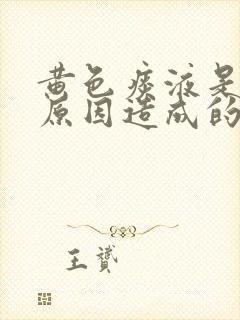 黄色痰液是
原因造成的
王赟